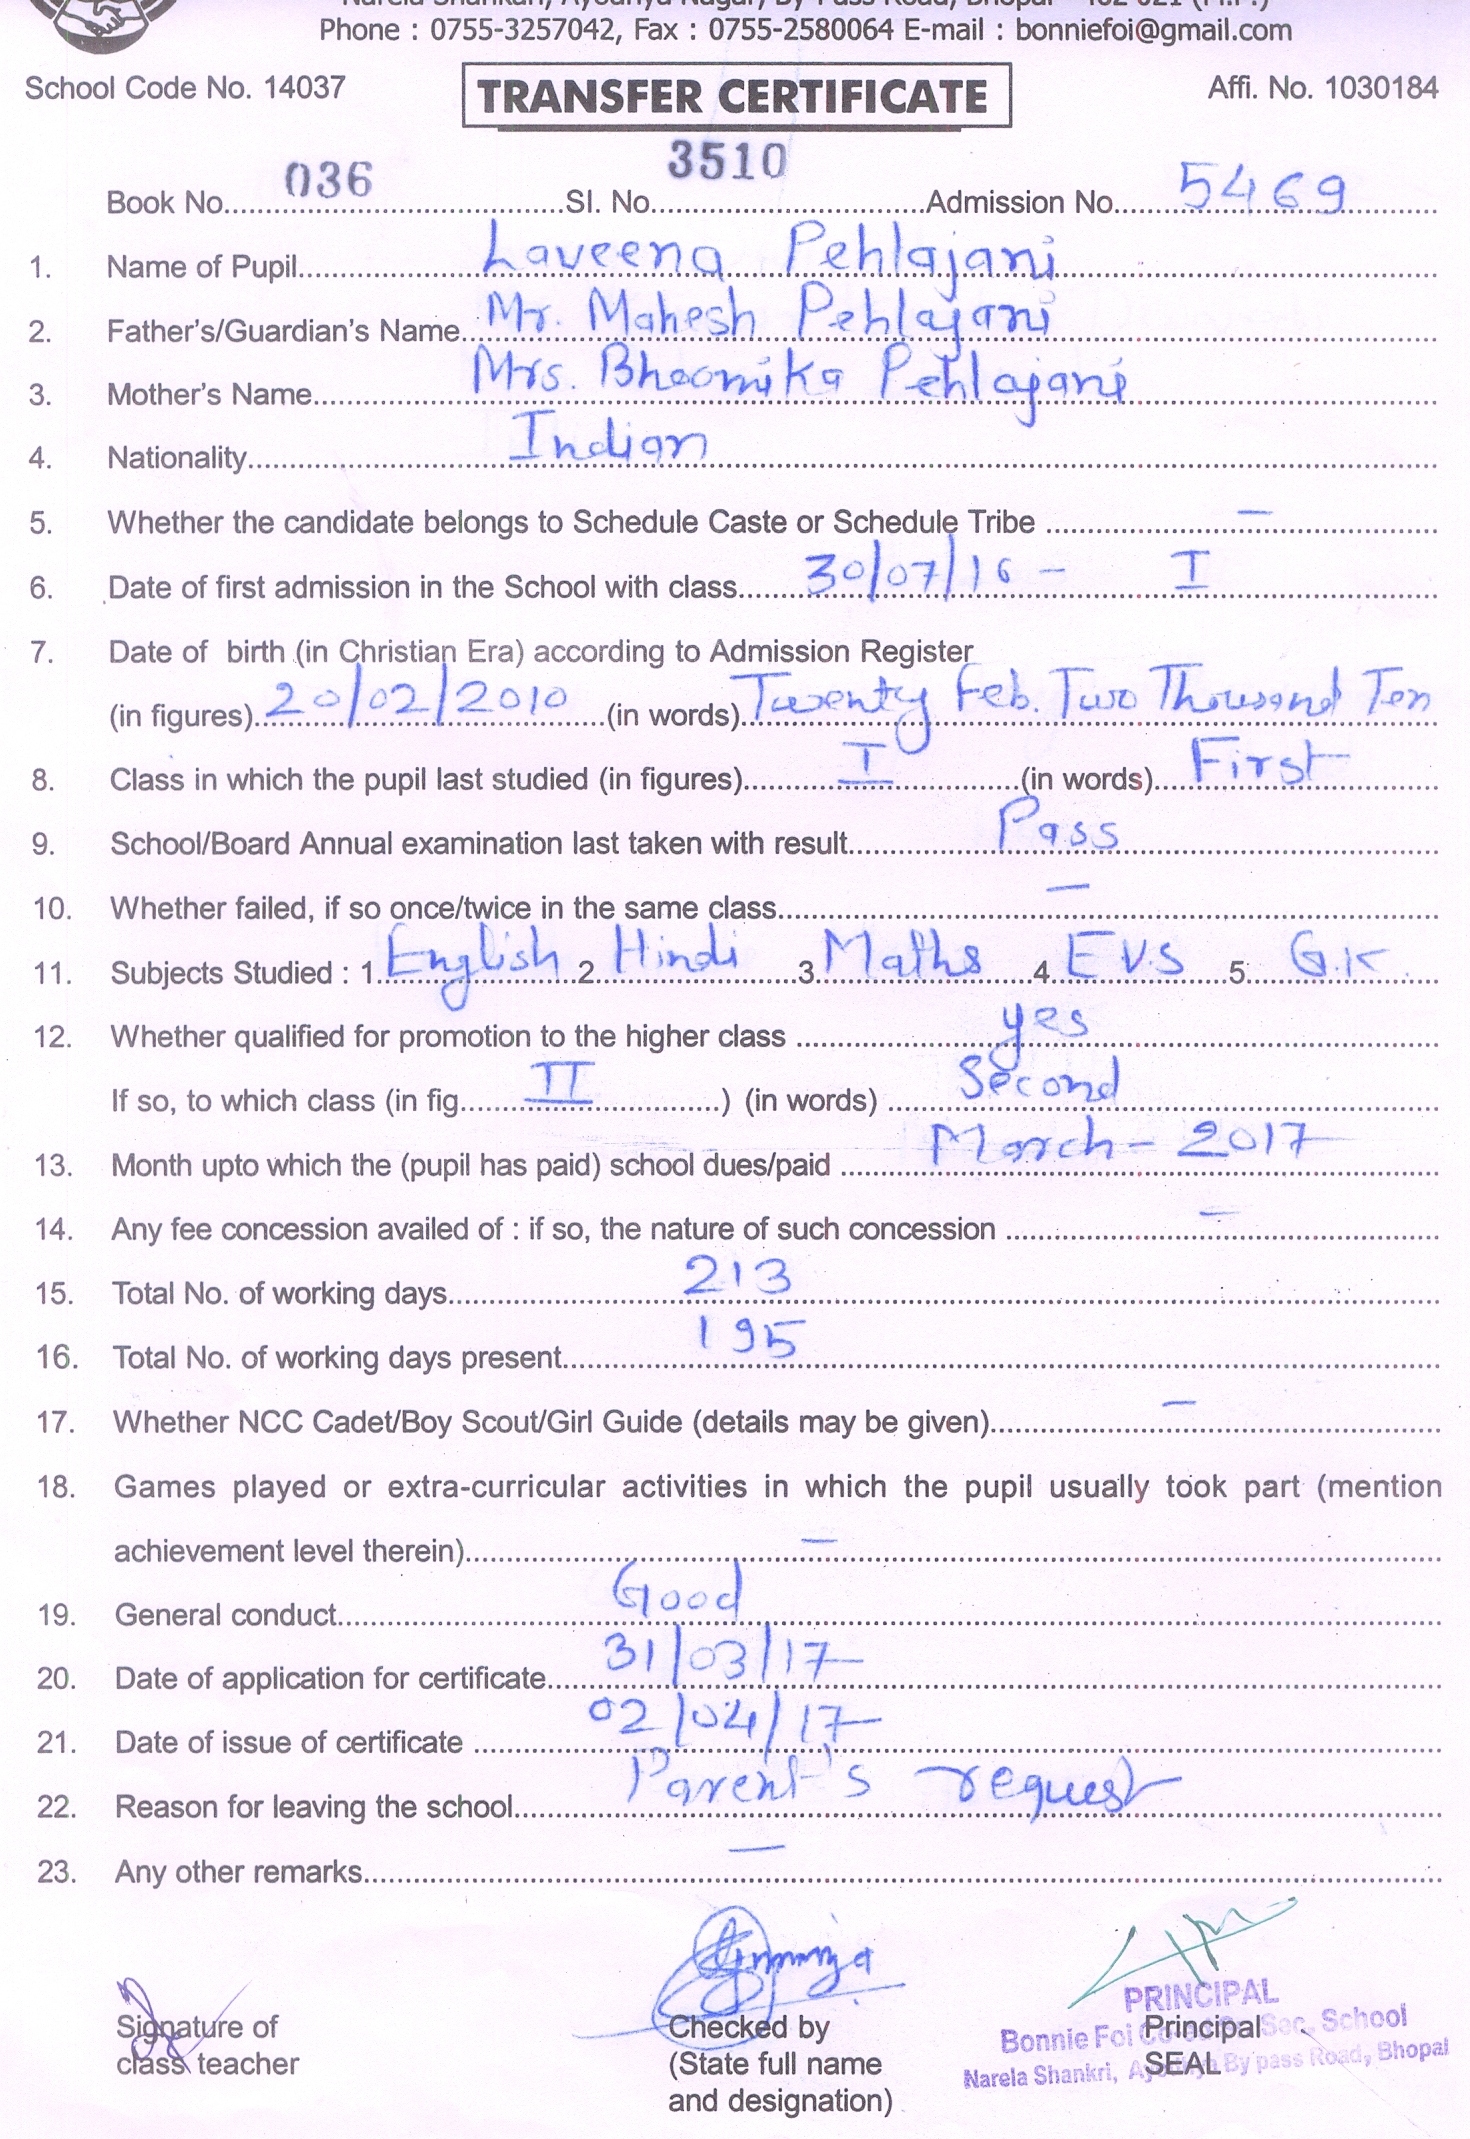 Phone : 0755-3257042, Fax : 0755-2580064 E-mail : bonniefoi@gmail.com
School Code No. 14037 TRANSFER CERTIFICATE Affi. No. 1030184
Book No. 036 Sl. No. 3510 Admission No. 5469
1. Name of Pupil Laveena Pehlajani
2. Father's/Guardian's Name Mr. Mahesh Pehlajani
3. Mother's Name Mrs. Bhoomika Pehlajani
4. Nationality Indian
5. Whether the candidate belongs to Schedule Caste or Schedule Tribe –
6. Date of first admission in the School with class 30/07/16 – I
7. Date of birth (in Christian Era) according to Admission Register
(in figures) 20/02/2010 (in words) Twenty Feb. Two Thousand Ten
8. Class in which the pupil last studied (in figures) I (in words) First
9. School/Board Annual examination last taken with result Pass
10. Whether failed, if so once/twice in the same class –
11. Subjects Studied : 1. English 2. Hindi 3. Maths 4. EVS 5. G.K.
12. Whether qualified for promotion to the higher class yes
If so, to which class (in fig. II ) (in words) Second
13. Month upto which the (pupil has paid) school dues/paid March - 2017
14. Any fee concession availed of : if so, the nature of such concession –
15. Total No. of working days 213
16. Total No. of working days present 195
17. Whether NCC Cadet/Boy Scout/Girl Guide (details may be given) –
18. Games played or extra-curricular activities in which the pupil usually took part (mention
achievement level therein) –
19. General conduct Good
20. Date of application for certificate 31/03/17
21. Date of issue of certificate 02/04/17
22. Reason for leaving the school Parent's request
23. Any other remarks –
PRINCIPAL
Signature of Checked by Principal
Bonnie Foi Sec. School
class teacher (State full name SEAL
Narela Shankri, By pass Road, Bhopal
and designation)